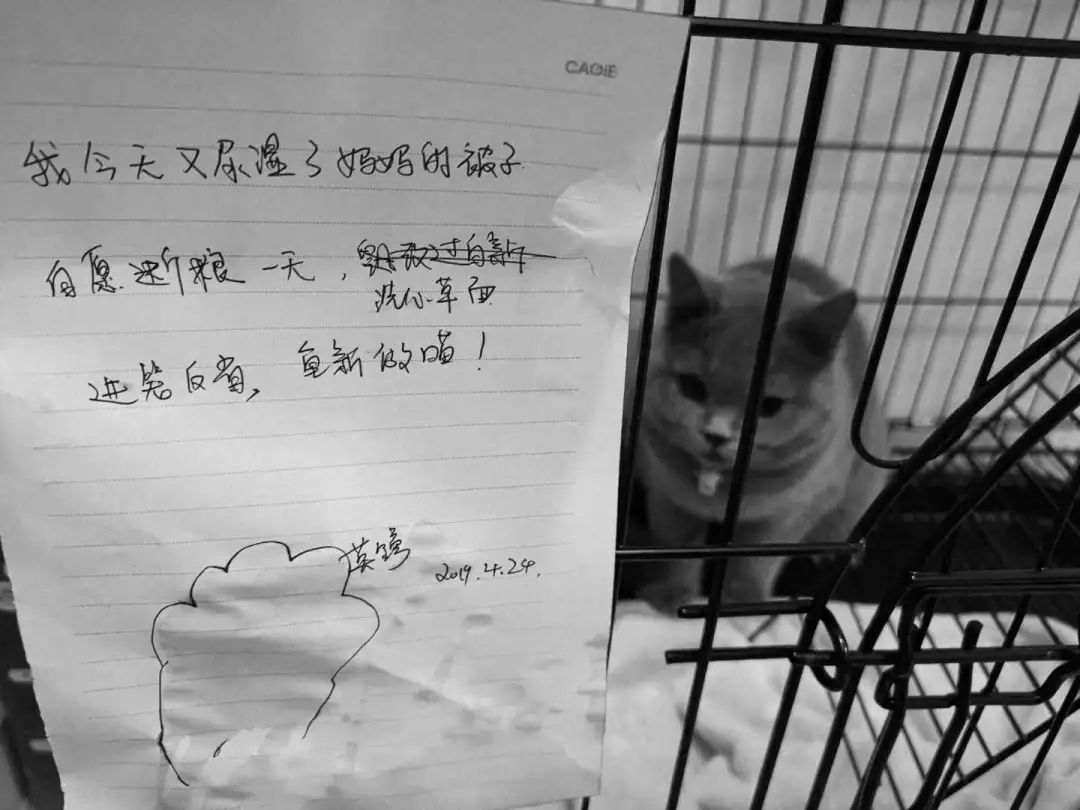 CAGIE
我今天又尿湿了妈妈的被子
自愿断粮一天，
洗心革面
进笼反省，重新做喵！
英
2019.4.24.